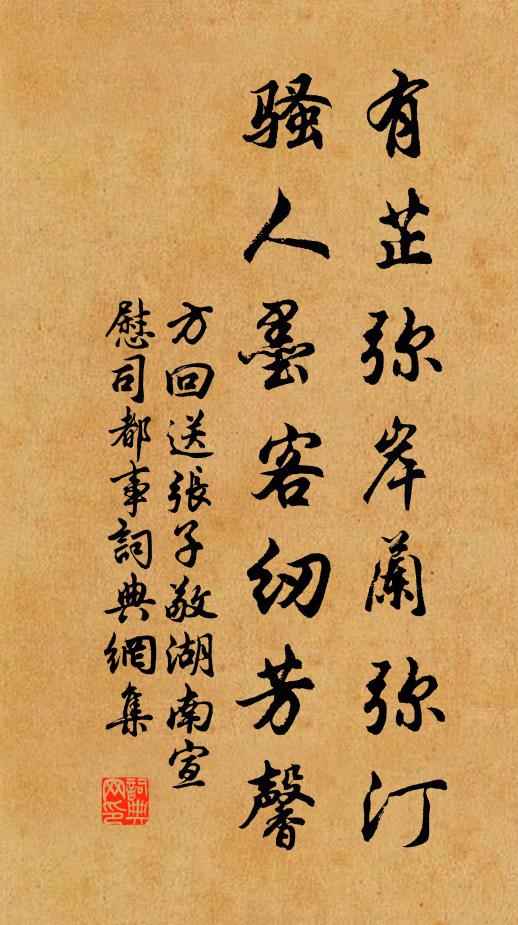 有芷弥岸蘭弥汀
騷人墨客纫芳馨
方回送張子敬湖南宣
慰司都事詞典網集
詞典网印